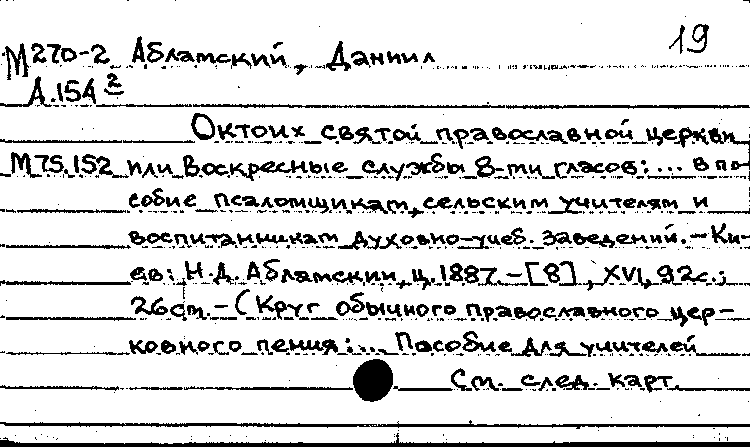 19
М270-2 Абламский, Даниил
А.154 2
Октоих святой православной церкви
М75.152 или Воскресные службы 8-ми гласов: ... В по-
собие псаломщикам, сельским учителям и
воспитанникам духовно-учеб. заведений. - Ки-
ев: Н.Д. Абламский, ц. 1887. - [8], XVI, 92с.;
26см. - (Круг обычного православного цер-
ковного пения: ... Пособие для учителей
См. след. карт.